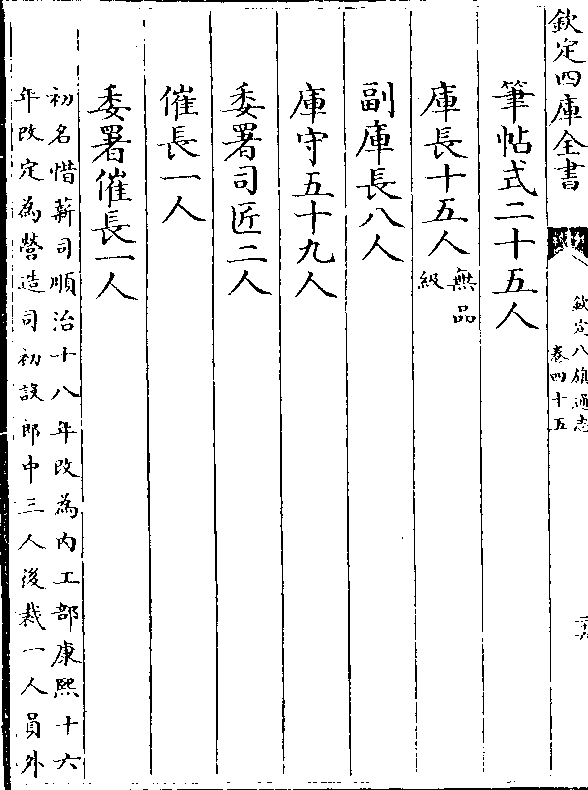 欽定四庫全書
欽定八旗通志
卷四十五
筆帖式二十五人
庫長十五人無品
級
副庫長八人
庫守五十九人
委署司匠二人
催長一人
委署催長一人
初名惜薪司順治十八年改為内工部康熙十六
年改定為營造司初設郎中三人後裁一人員外